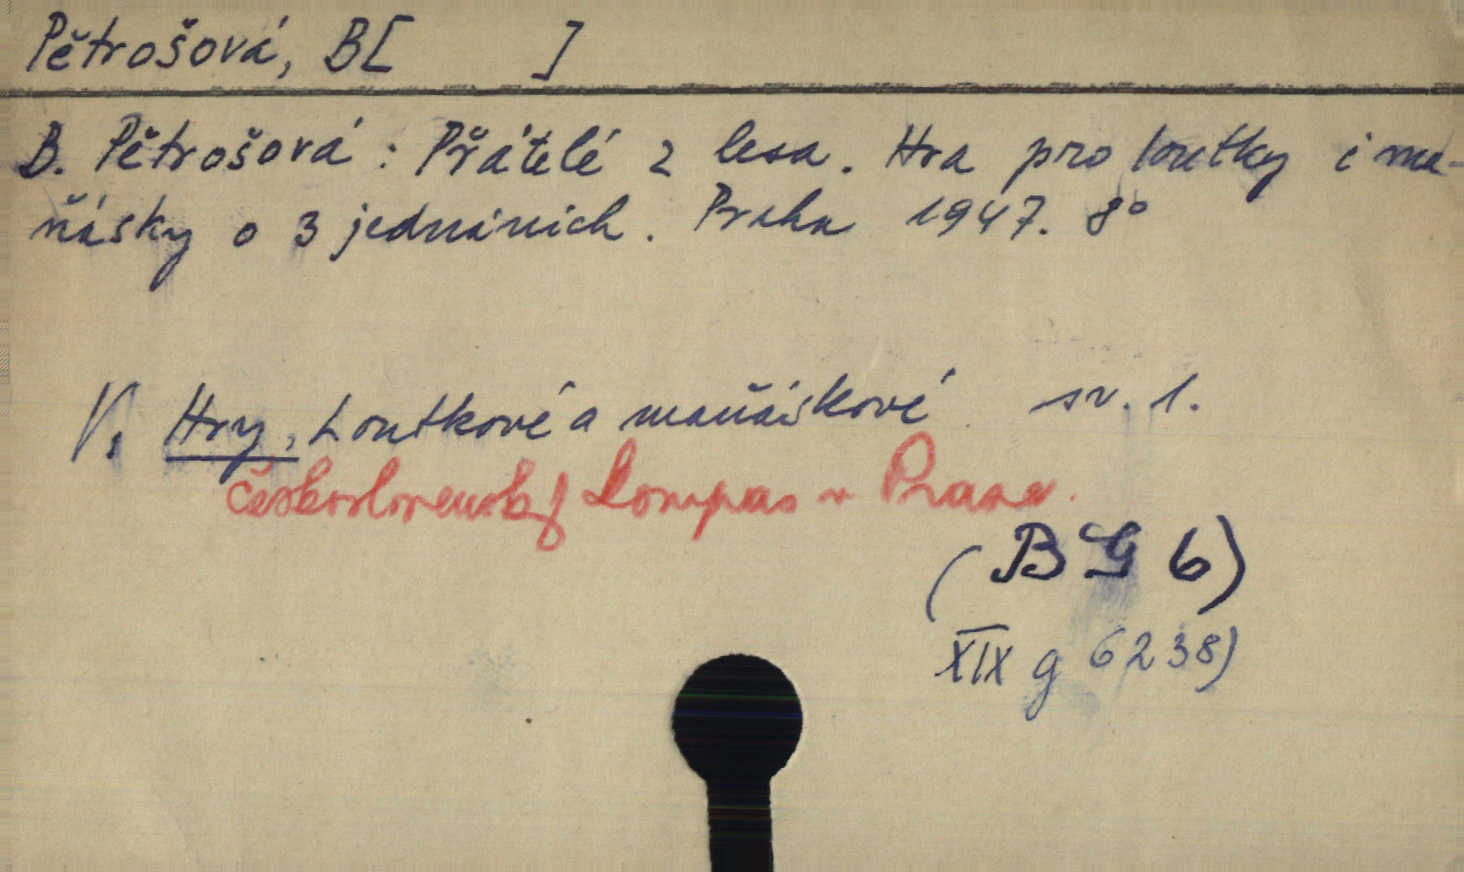 Pětrošová, B[ ]
B. Pětrošová: Přátelé z lesa. Hra pro loutky i ma-
ňásky o 3 jednáních. Praha 1947. 8°
V. Hry, Loutkové a maňáskové sv. 1.
Československý Kompas v Praze.
(BG 6)
XIX g 6238)